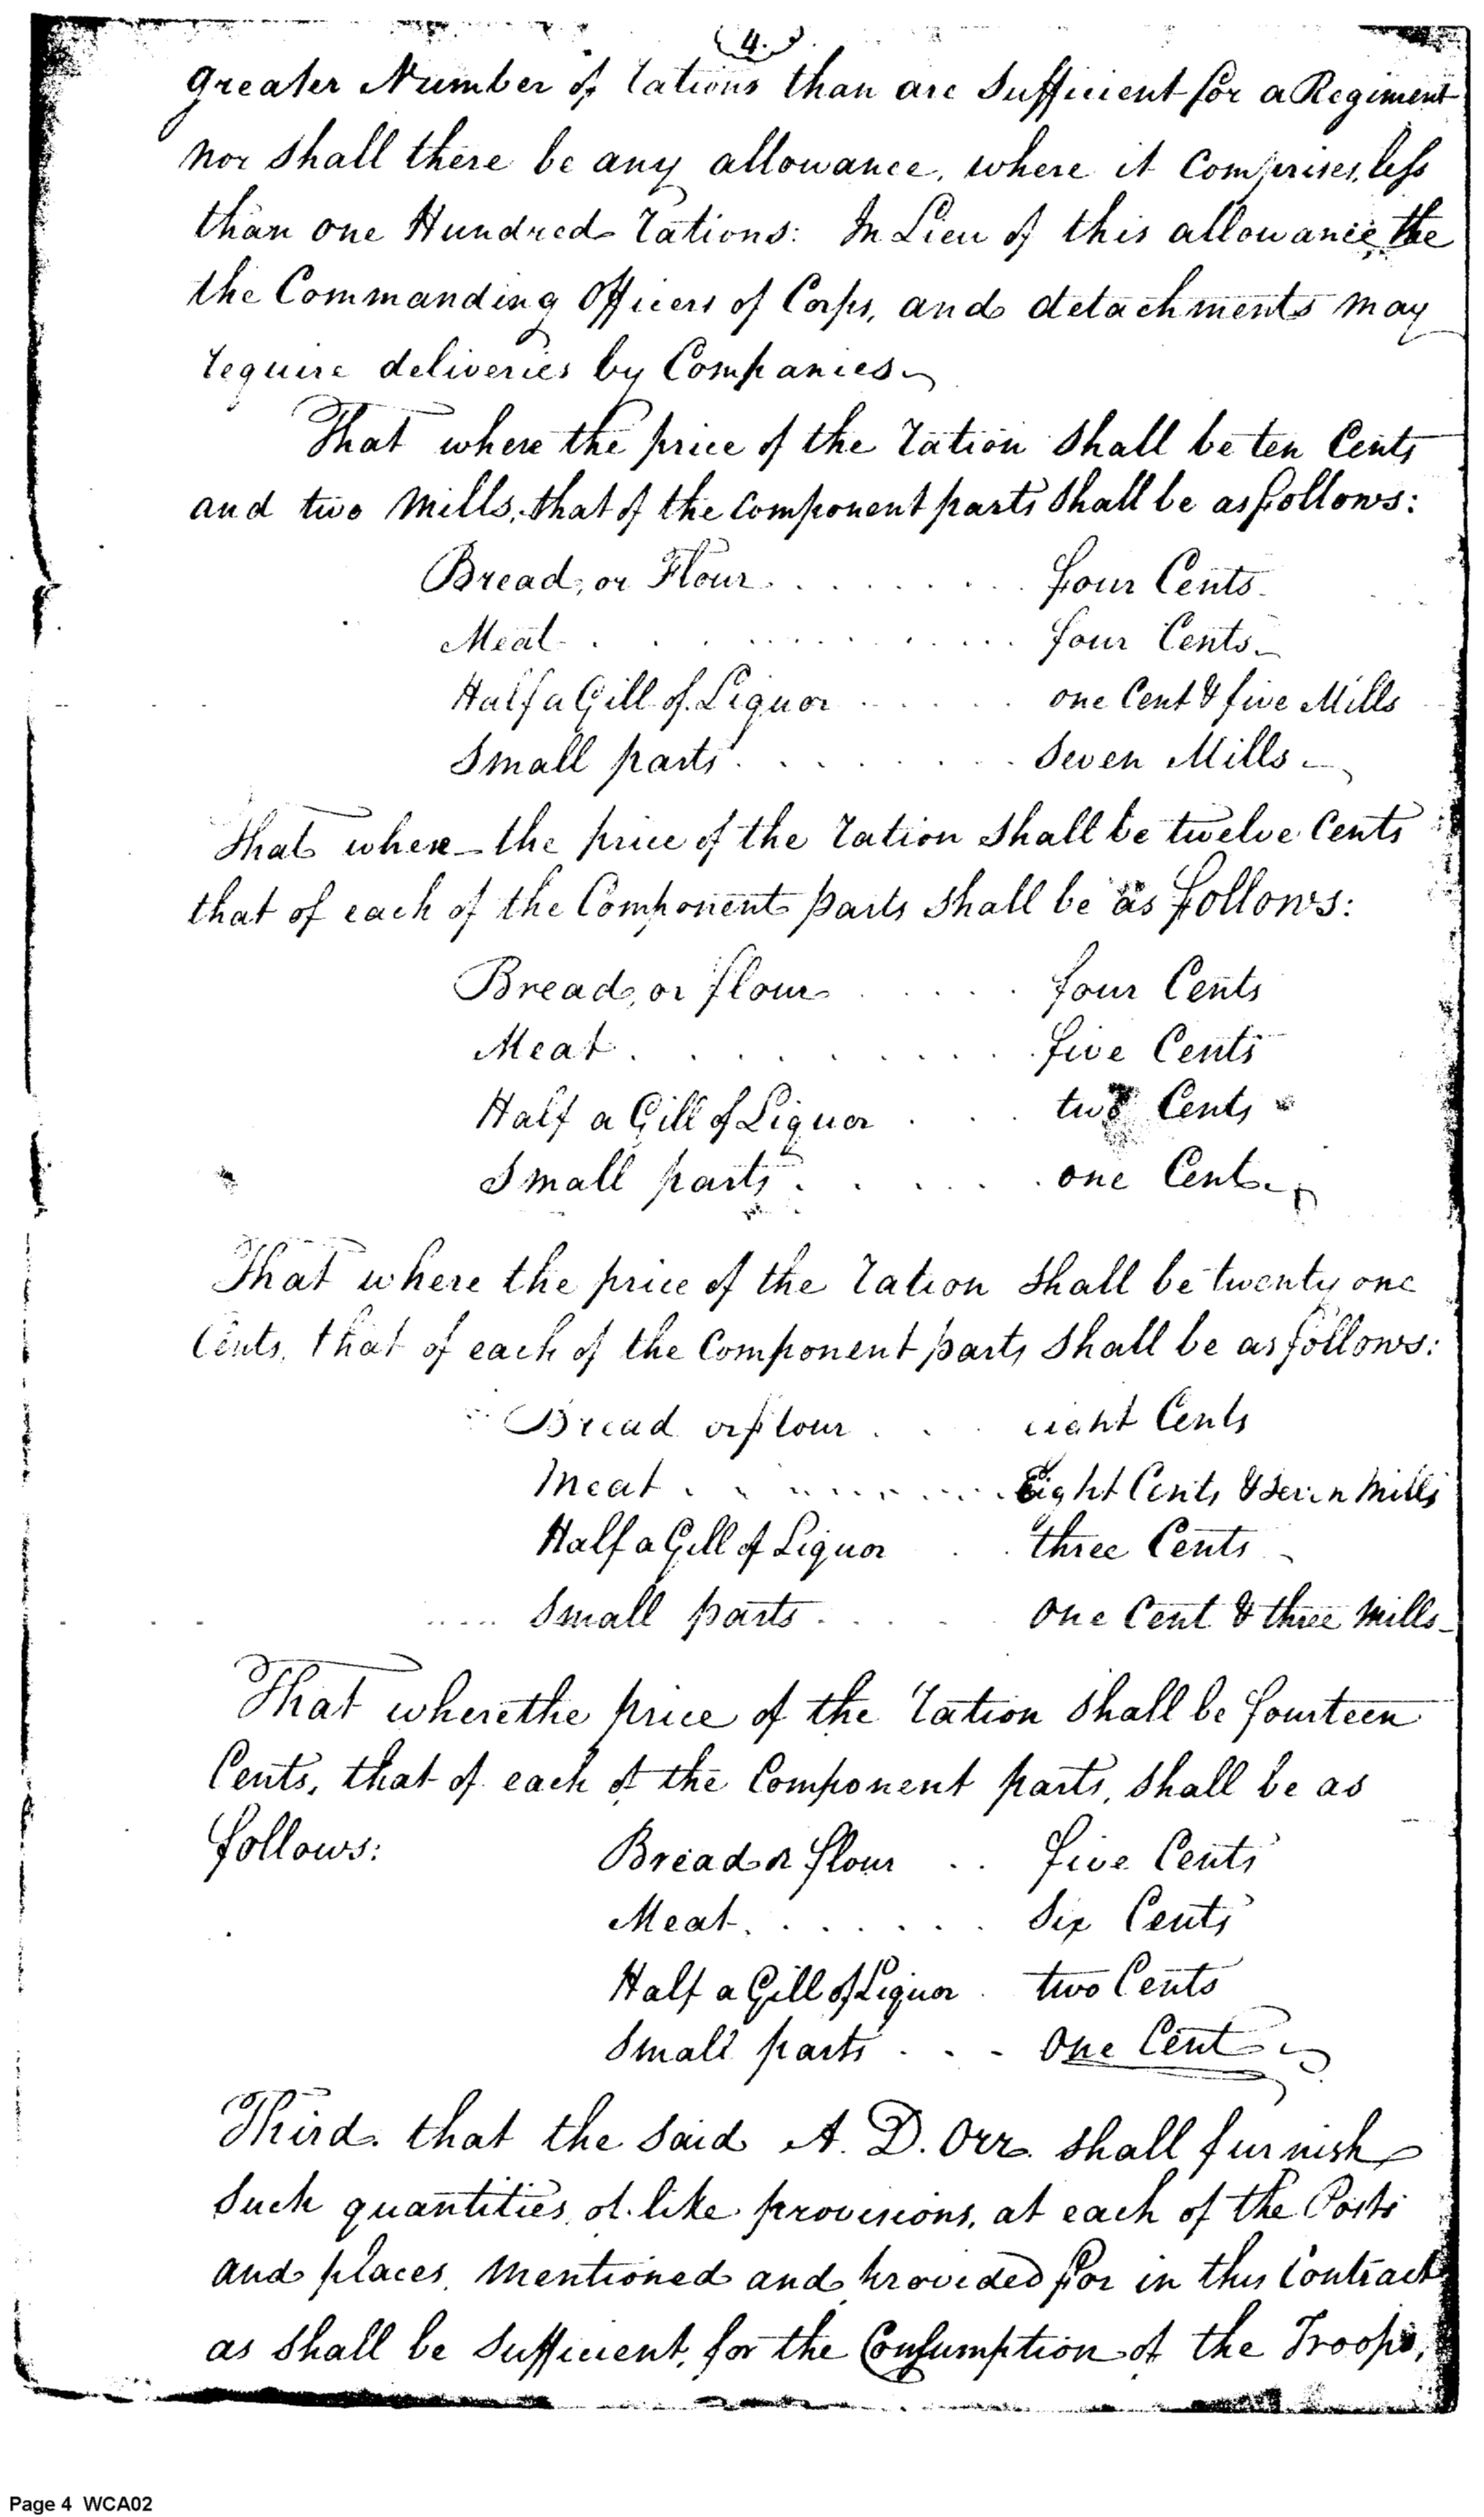 (4.)
greater Number of rations than are sufficient for a Regiment
nor shall there be any allowance, where it comprises, less
than one Hundred rations: In Lieu of this allowance, the
the Commanding Officers of Corps, and detachments may
require deliveries by Companies
That where the price of the ration shall be ten Cents
and two Mills, that of the component parts shall be as follows:
Bread, or Flour . . . . . . . . four Cents
Meat . . . . . . . . . . four Cents
Half a Gill of Liquor . . . . . . one Cent & five Mills
Small parts . . . . . . . . Seven Mills
That where the price of the ration shall be twelve Cents
that of each of the Component parts shall be as follows:
Bread, or flour . . . . . four Cents
Meat . . . . . . . . . . five Cents
Half a Gill of Liquor . . . two Cents
Small parts . . . . . . one Cent
That where the price of the ration shall be twenty one
Cents, that of each of the Component parts shall be as follows:
Bread or flour . . . eight Cents
Meat . . . . . . . . . Eight Cents & seven Mills
Half a Gill of Liquor . . three Cents
Small parts . . . . One Cent & three Mills
That where the price of the ration shall be fourteen
Cents, that of each of the Component parts, shall be as
follows: Bread or flour . . five Cents
Meat . . . . . . . Six Cents
Half a Gill of Liquor . two Cents
Small parts . . . One Cent
Third. that the said A. D. Orr. shall furnish
such quantities of like provisions, at each of the Posts
and places, mentioned and provided for in this Contract
as shall be sufficient, for the Consumption of the Troops,
Page 4 WCA02